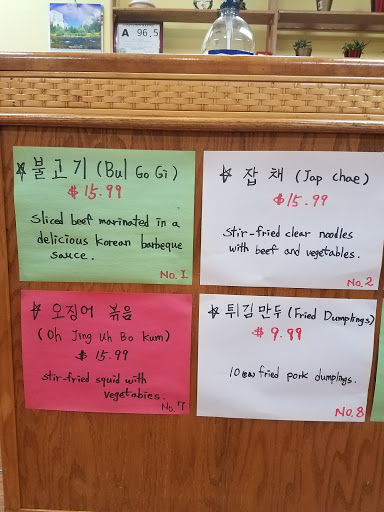 A 96.5
☆ 불고기 (Bul Go Gi)
$15.99
Sliced beef marinated in a
delicious Korean barbeque
sauce.
No.1
☆ 잡채 (Jap chae)
$15.99
Stir-fried clear noodles
with beef and vegetables.
No.2
☆ 오징어 볶음
(Oh Jing Uh Bo Kum)
$15.99
stir-fried squid with
vegetables.
No.7
☆ 튀김만두 (Fried Dumplings)
$9.99
10 fried pork dumplings.
No.8